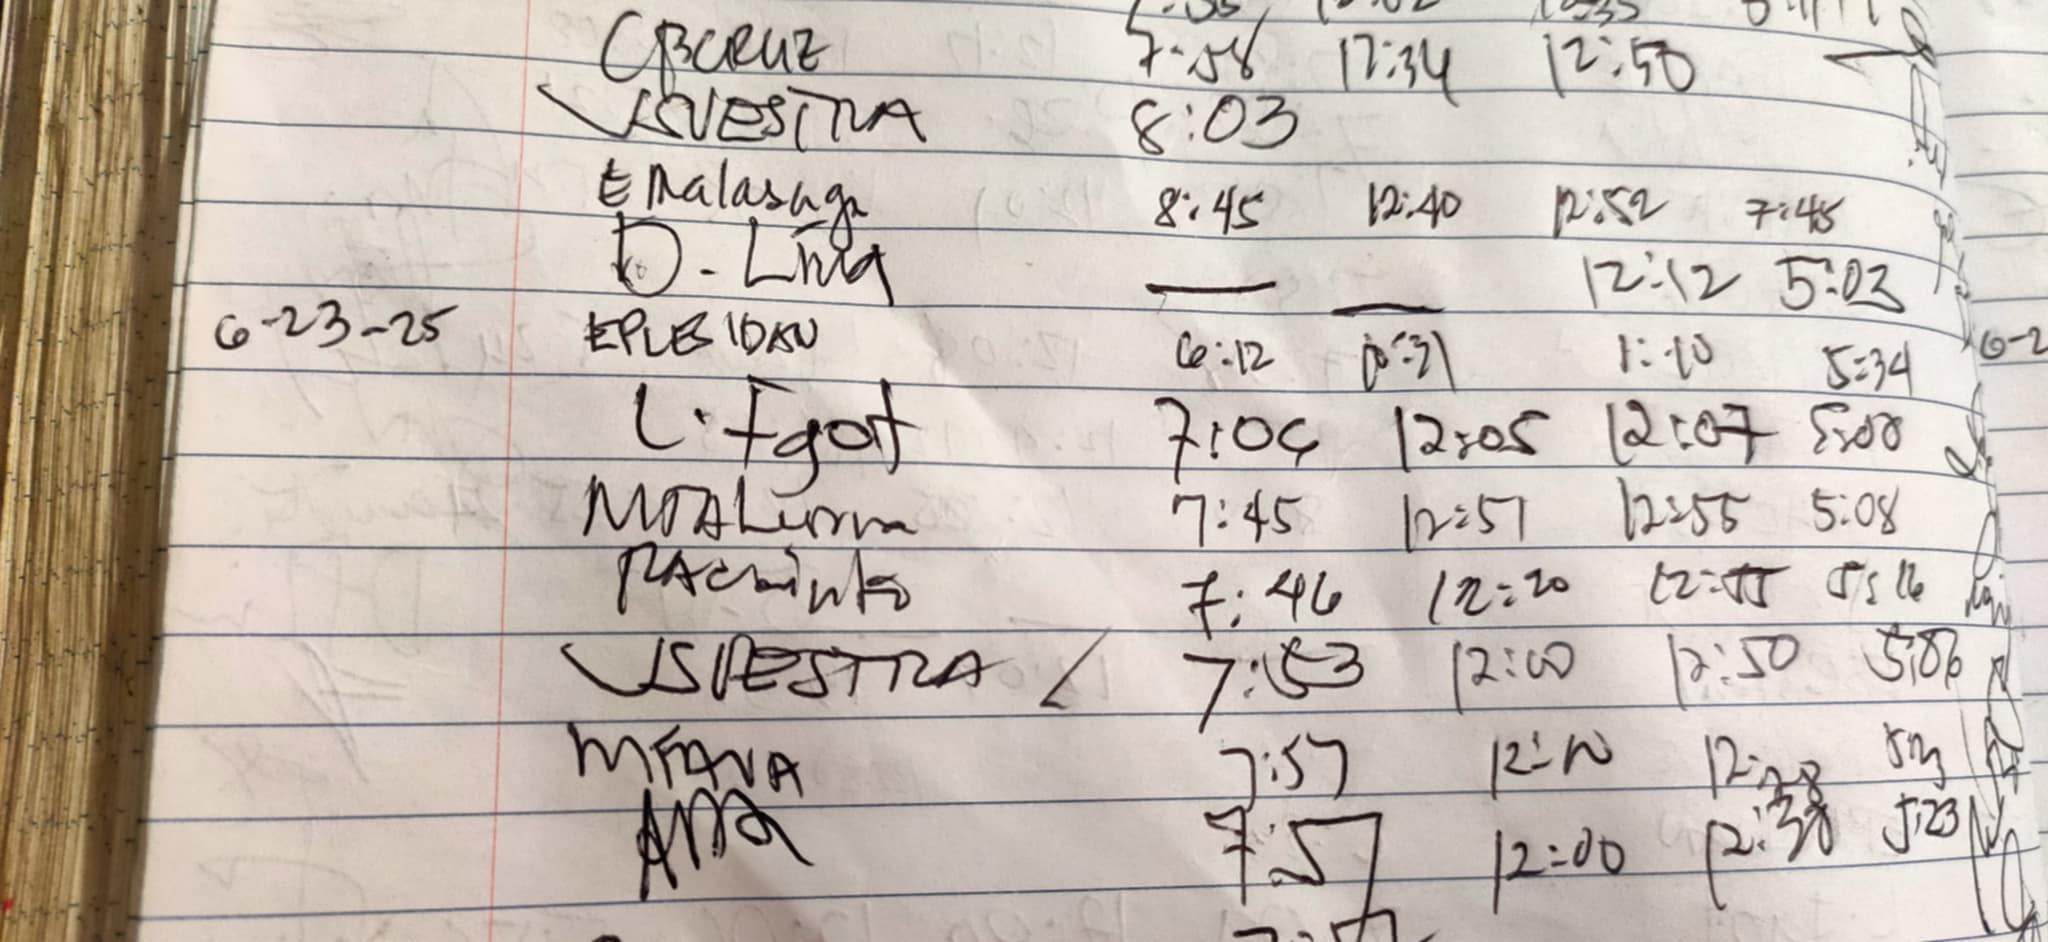 CBCRUZ 7:58 12:34 12:50
JSVESTRA 8:03
E Malasaga 8:45 12:40 12:52 7:45
D. Lina — — 12:12 5:03
6-23-25 EPLESIDAN 6:12 10:31 1:10 5:34
L. Igot 7:04 12:05 12:07 5:00
7:45 12:51 12:55 5:08
7:46 12:20 12:55 5:16
JSVESTRA 7:53 12:00 12:50 5:06
MFAVA 7:57 12:10
7:57 12:00 12:38 5:23